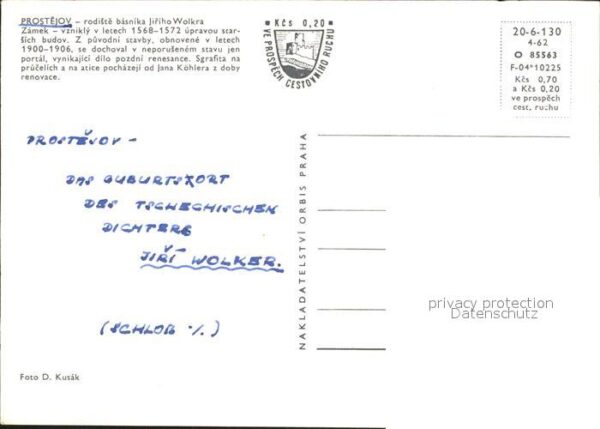 PROSTĚJOV – rodiště básníka Jiřího Wolkra
Zámek – vzniklý v letech 1568–1572 úpravou star-
ších budov. Z původní stavby, obnovené v letech
1900–1906, se dochoval v neporušeném stavu jen
portál, vynikající dílo pozdní renesance. Sgrafita na
průčelích a na atice pocházejí od Jana Köhlera z doby
renovace.
Kčs 0,20
VE PROSPĚCH CESTOVNÍHO RUCHU
20-6-130
4-62
O 85563
F-04*10225
Kčs 0,70
a Kčs 0,20
ve prospěch
cest. ruchu
PROSTĚJOV –
DAS GUBURTSORT
DES TSCHECHISCHEN
DICHTERS
JIŘÍ WOLKER.
(SCHLOß ./.)
NAKLADATELSTVÍ ORBIS PRAHA
privacy protection
Datenschutz
Foto D. Kusák